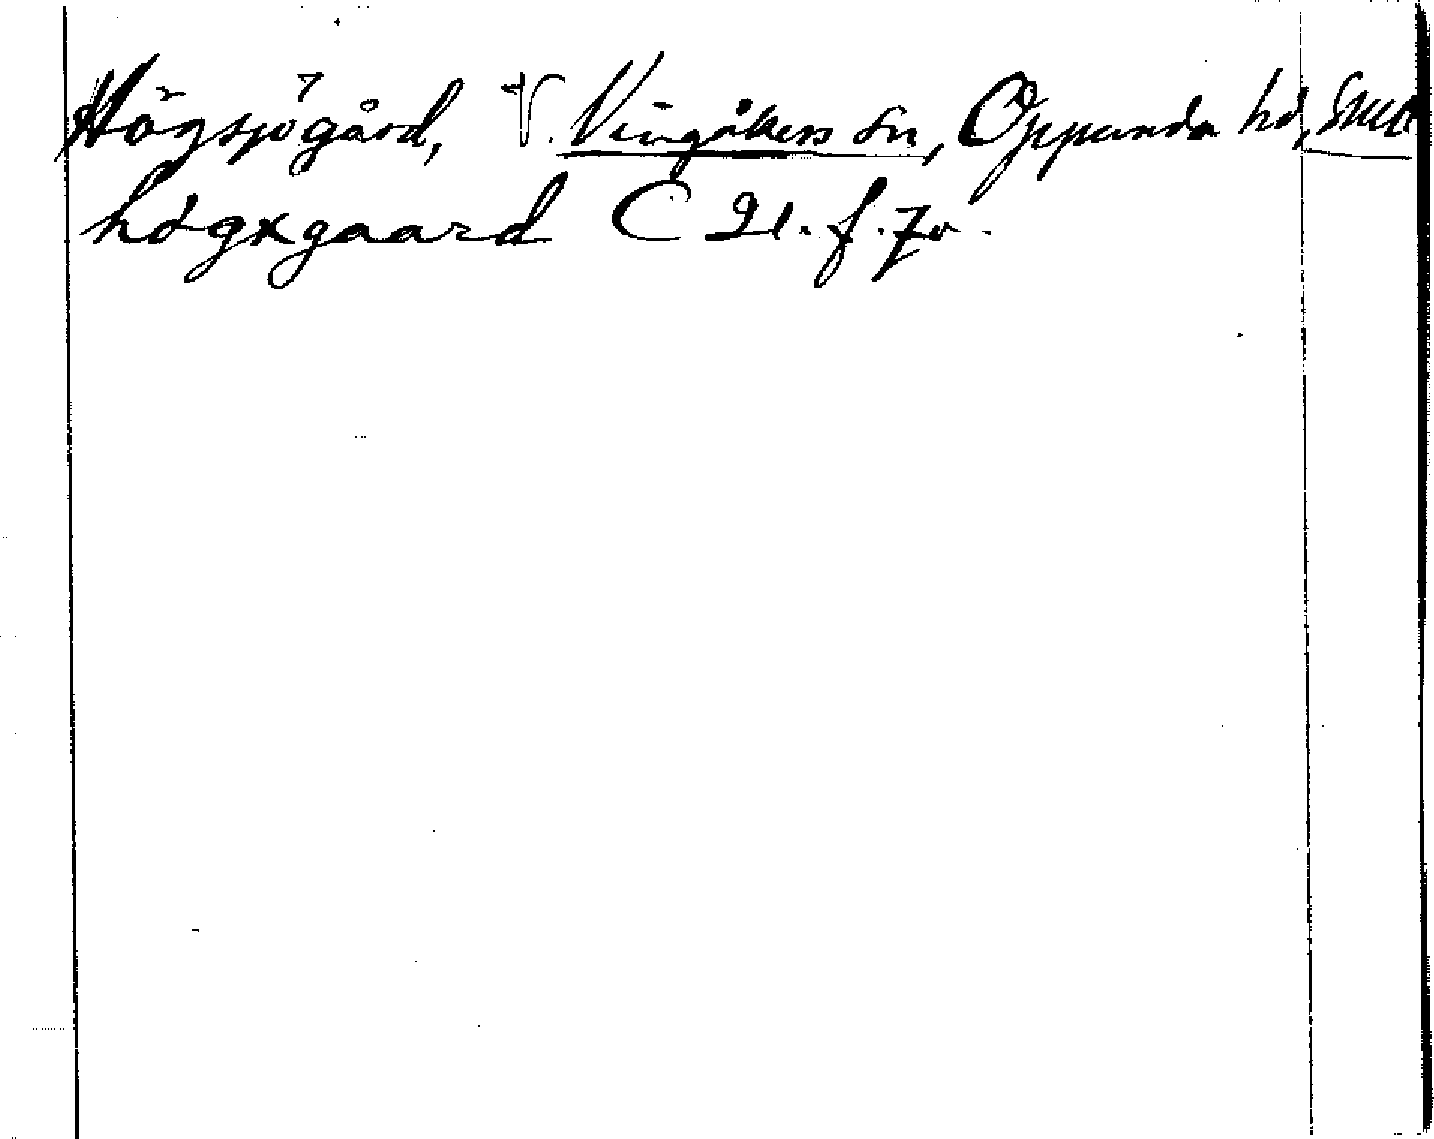 Högsjögård, V. Vingåkers sn, Oppunda hd,
högxgaard C 21. f. 70.